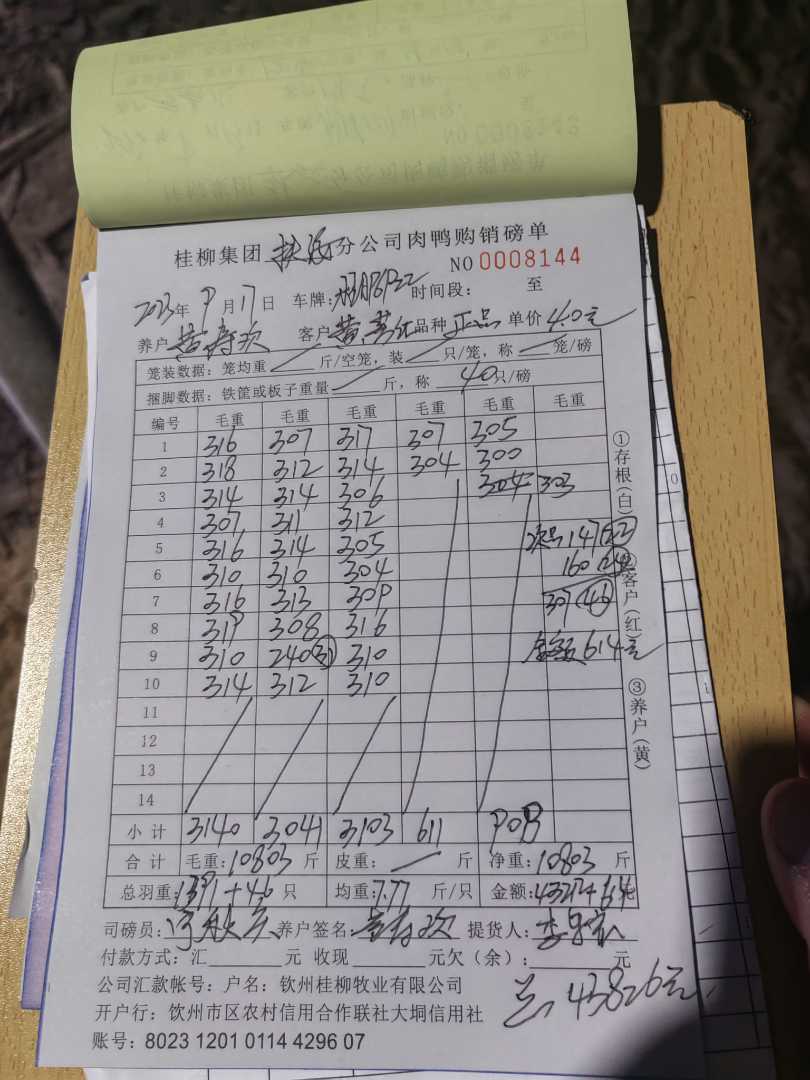 桂柳集团 扶绥 分公司肉鸭购销磅单
NO 0008144
2023年 9月 17日 车牌: 时间段: 至
养户 黄寿欢 客户 黄 品种 正品 单价 4.0元
笼装数据: 笼均重 斤/空笼, 装 只/笼, 称 笼/磅
捆脚数据: 铁筐或板子重量 斤, 称 40只/磅
编号 毛重 毛重 毛重 毛重 毛重 毛重
1 316 307 317 307 305
2 318 312 314 304 300
3 314 314 306 304 303
4 307 311 312
5 316 314 305 次品147
6 310 310 304 160
7 316 313 309 307
8 319 308 316
9 310 240(31) 310 金额614元
10 314 312 310
11
12
13
14
小计 3140 3041 3103 611 908
合计 毛重:10803斤 皮重: 斤 净重:10803斤
总羽重:1391+46只 均重:7.77斤/只 金额:43212+614元
司磅员: 养户签名: 黄寿欢 提货人:
付款方式:汇 元 收现 元欠(余): 元
公司汇款帐号: 户名: 钦州桂柳牧业有限公司
开户行: 钦州市区农村信用合作联社大垌信用社
账号: 8023 1201 0114 4296 07
总: 43826元
①存根(白)②客户(红)③养户(黄)